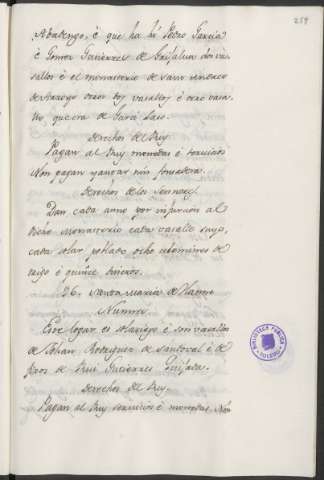 259
Abadengo, é que ha hi Pedro Garcia
é Gomez Gutierrez de Grijalva dos va-
sallos é el monasterio de
de Arroyo otros vasallos é otro vasa-
llo que era de Garci Laso.
Derechos del Rey
Pagan al Rey monedas é servicios
Non pagan yantar nin fonsadera.
Derechos de los Sennores
Dan cada anno por infurcion al
dicho Monasterio cada vasallo suyo,
cada solar poblado ocho celemines de
trigo é quince dineros.
26. Santa Maria de Hanno
Nunnez.
Este logar es solariego é son vasallos
de Johan Rodriguez de Sandoval é de
fijos de Rui Gutierrez Quijada.
Derechos del Rey.
Pagan al Rey servicios é monedas. Non
BIBLIOTECA PUBLICA
TOLEDO